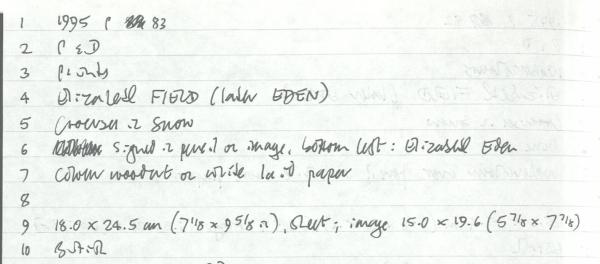 1 1995 P 83
2 P & D
3 Prints
4 Elizabeth FIELD (later EDEN)
5 in Snow
6 Signed in pencil on image, bottom left: Elizabeth Eden
7 Colour woodcut on white laid paper
8
9 18.0 x 24.5 cm (7 1/8 x 9 5/8 in), sheet; image 15.0 x 19.6 (5 7/8 x 7 7/8)
10 British